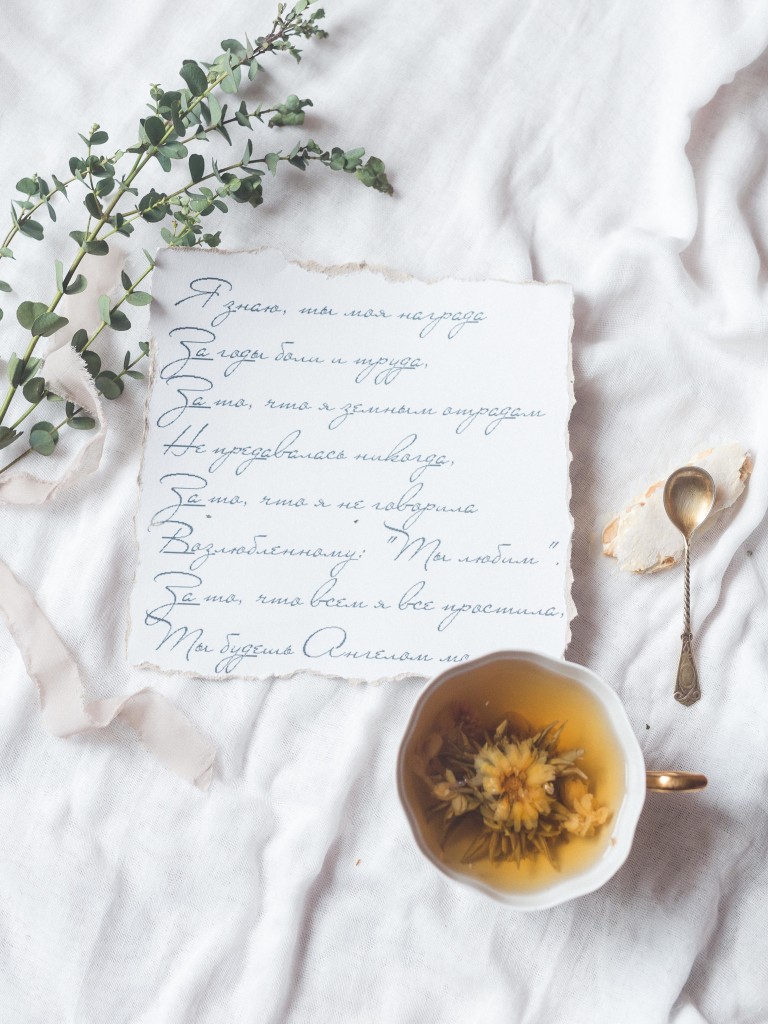 Я знаю, ты моя награда
За годы боли и труда,
За то, что я земным отрадам
Не предавалась никогда,
За то, что я не говорила
Возлюбленному: "Ты любим".
За то, что всем я все простила,
Ты будешь Ангелом